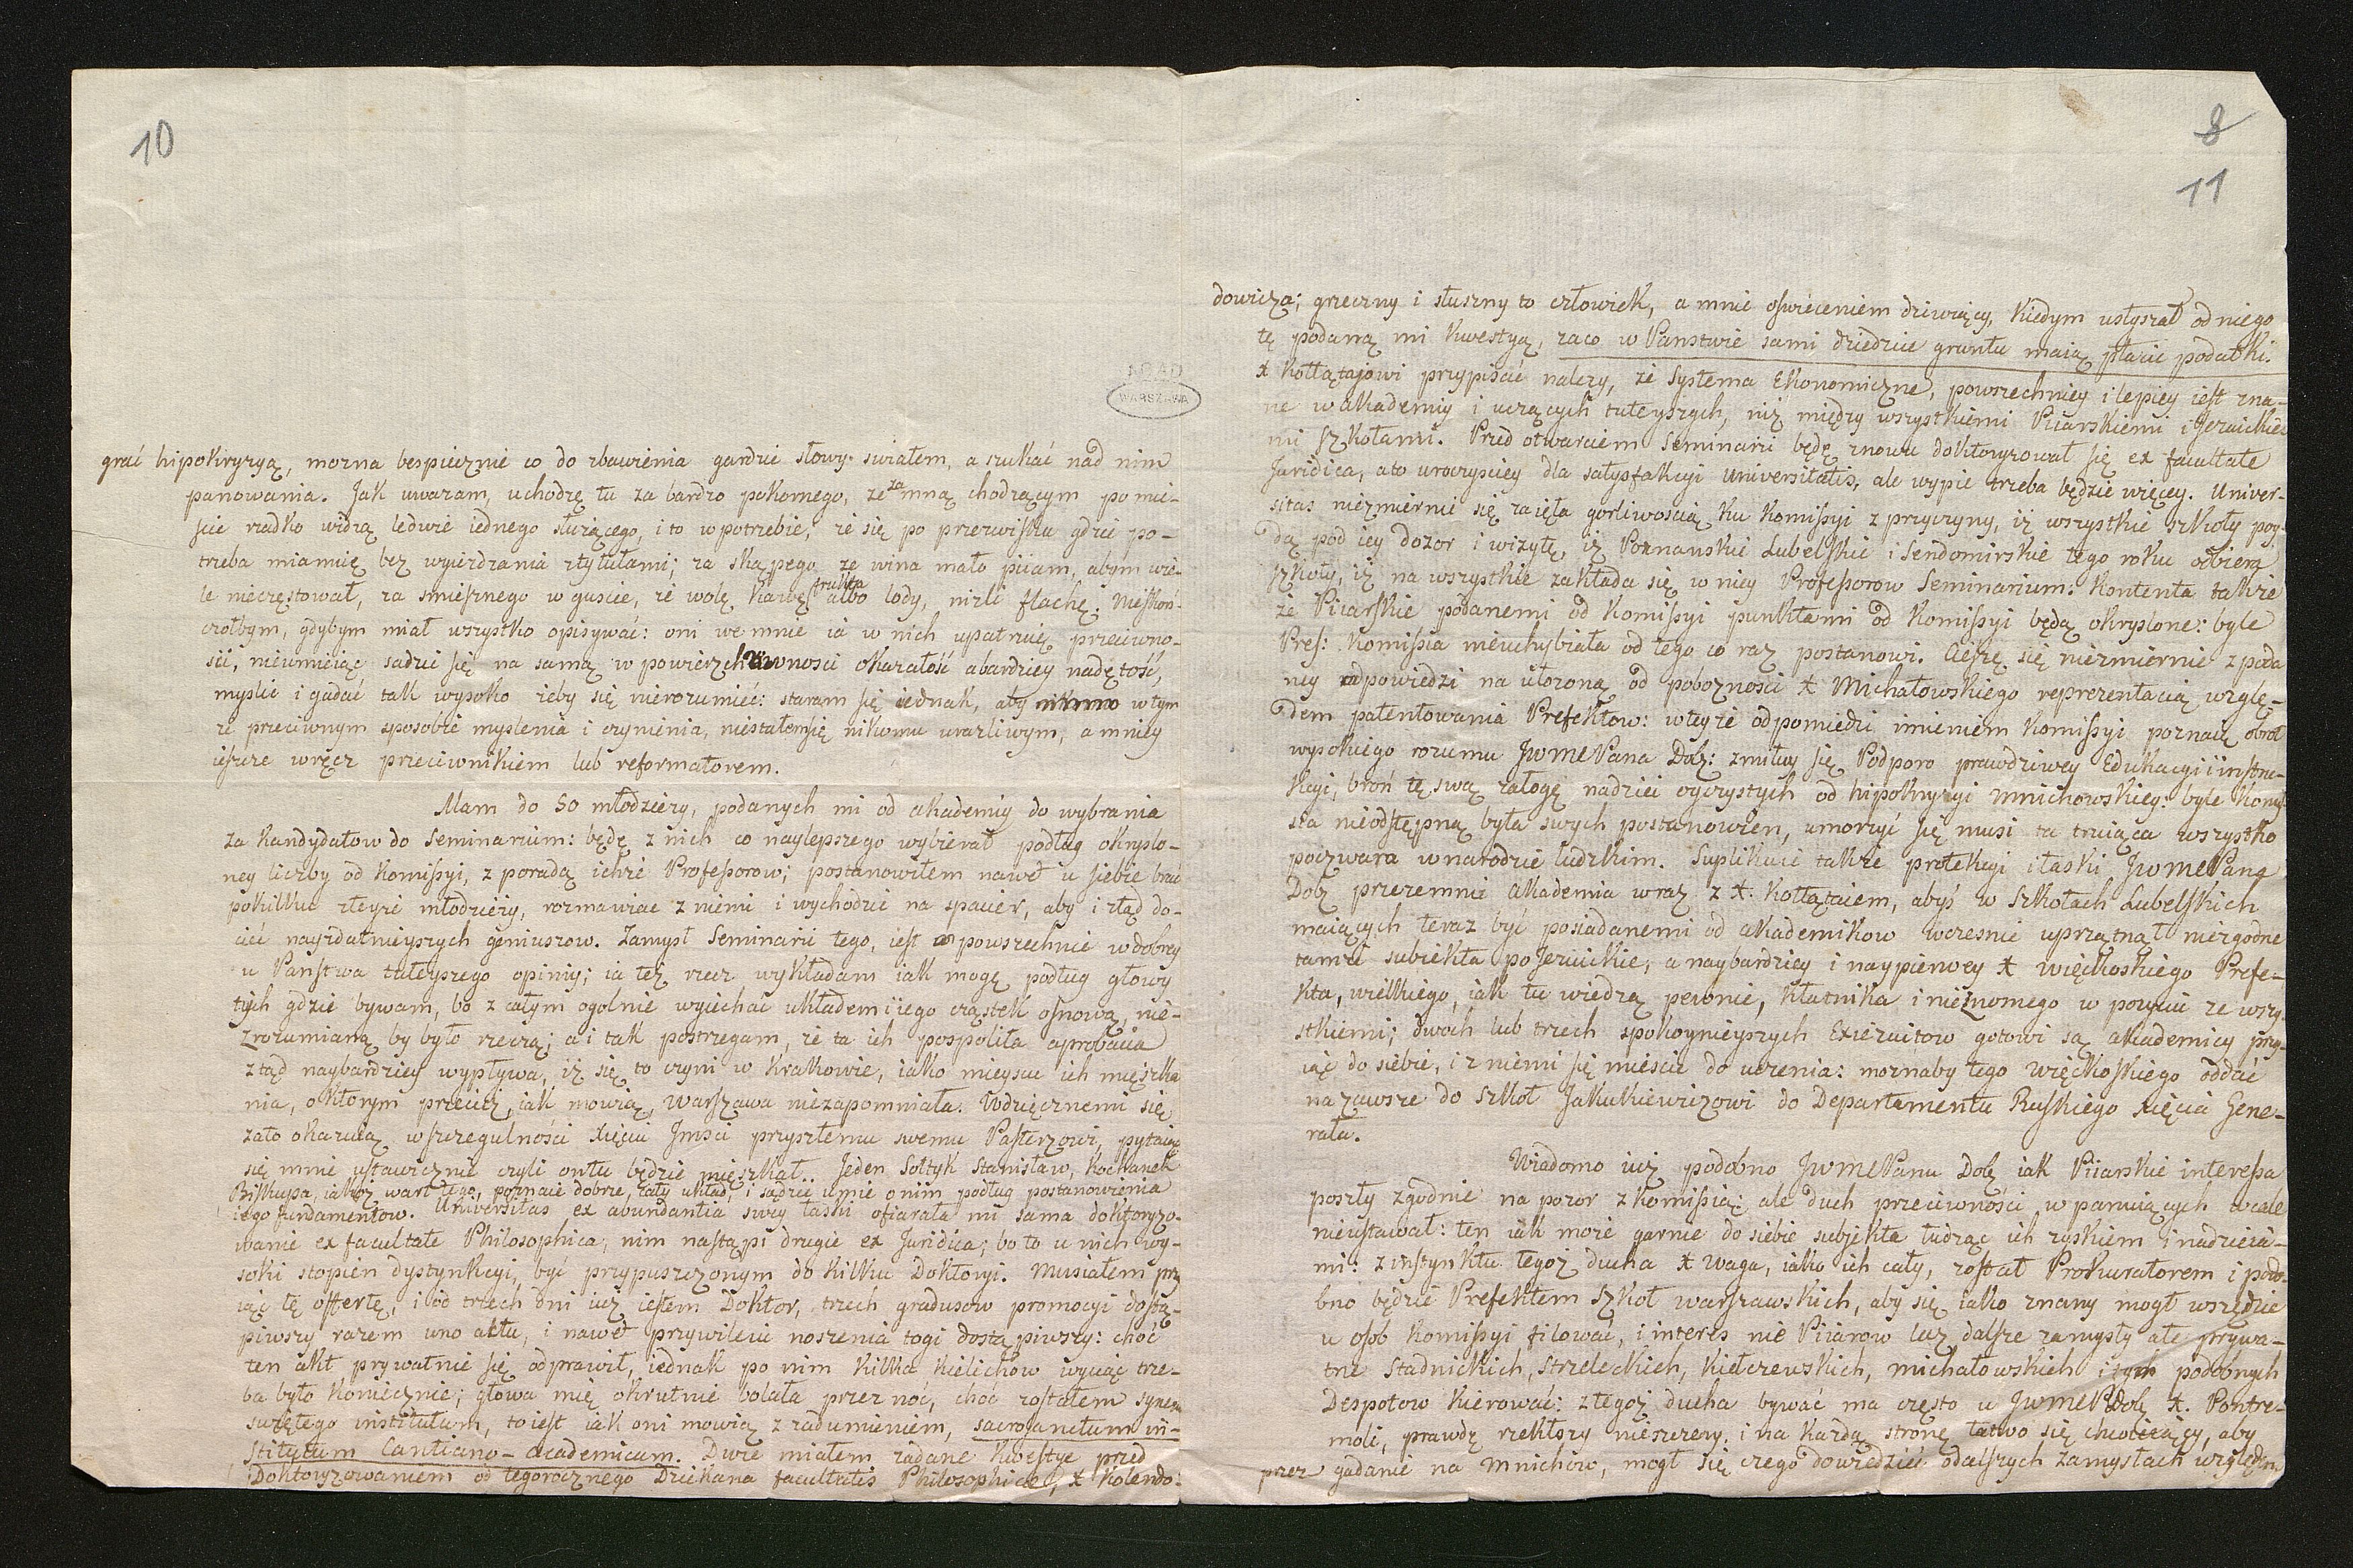 10
grać hipokryzyą, mozna bespiecznie co do zbawienia gardzic słowy swiatem, a szukać nad nim
panowania. Jak uwazam, uchodzę tu za bardzo pokornego, ze za mną chodzącym po mie-
scie rzadko widzą ledwie iednego słuzącego, i to w potrzebie, ze się po przezwisku gdzie po-
trzeba mianuię bez wyiezdzania ztytułami; za skąpego ze wina mało piiam, abym wie-
le nieczęstował, za smiesznego w guscie, że wolę kawę frukta albo lody, nizli flachę. Nieskoń-
czołbym, gdybym miał wszystko opisywać: oni we mnie ia w nich upatruię przeciwno-
sci, nieumieiąc sadzić się na samą w powierzchowności okazałość a bardziey nadętość,
myslić i gadać tak wysoko żeby się nierozumieć: staram się iednak, aby w tym
ze przeciwnym sposobie myslenia i czynienia, niestałemsię nikomu urazliwym, a mniey
ieszcze wręcz przeciwnikiem lub reformatorem.
Mam do 50 młodziezy, podanych mi od akademiy do wybrania
za kandydatow do Seminarium: będę z nich co naylepszego wybierał podług okryslo-
ney liczby od Komissyi, z poradą ichże Professorow; postanowiłem nawet u siebie brać
pokilku zteyże młodzieży, rozmawiać z niemi i wychodzić na spacier, aby i ztąd do-
ciec nayzdatnieyszych geniuszow. Zamysł Seminarii tego, iest powszechnie w dobrey
u Państwa tuteyszego opiniy; ia też rzecz wykładam iak mogę podług głowy
tych gdzie bywam, bo z całym ogolnie wyiechać układem iiego cząstek osnową, nie-
zrozumianą by było rzeczą; a i tak postrzegam, że ta ich pospolita aprobacia
ztąd naybardziey wypływa, iż się to czyni w Krakowie, iako mieyscu ich mięszka
nia, o którym przecież, iak mowią, Warszawa niezapomniała. Wdzięcznemi się
zato okazuią wszczegulności Xięciu Jmści przyszłemu swemu Pasterzowi, pytaiąc
się mnie ustawicznie czyli ontu będzie mięszkał.. Jeden Sołtyk Stanisław, Kochanek
Biskupa, iakoż wart tego, poznaie dobrze, cały układ, i sądzić umie o nim podług postanowienia
iego fundamentow. Universitas ex abundantia swey łaski ofiarała mi sama doktoryzo-
wanie ex facultate Philosophica, nim nastąpi drugie ex Juridica; bo to u nich wy-
soki stopien dystynkcyi, być przypuszczonym do kilku Doktoryi. Musiałem przy
iąć tę offertę, i od trzech dni iuż iestem Doktor, trzech gradusow promocyi dostą-
piwszy razem uno actu, i nawet przywileiu noszenia togi dostąpiwszy: choć
ten akt prywatnie się odprawił, iednak po nim kilka kielichow wyciąć trze-
ba było koniecznie; głowa mię okrutnie bolała przez noc, choc zostałem synem
swiętego institutum, to iest iak oni mowią z zadumieniem, sacrosanctum in-
stitutum Cantiano-Academicum. Dwie miałem zadane kwestye przed
Doktoryzowaniem od tegorocznego Dziekana facultatis Philosophicae, X Kolendo-
AGAD
WARSZAWA
8
11
dowicza; grzeczny i słuszny to człowiek, a mnie oswieceniem dziwiący, kiedym usłyszał od niego
tę podaną mi kwestyą, zaco w Panstwie sami dziedzice gruntu maią płacić podatki.
X Kołłątajowi przypisać nalezy, że Systema Ekonomiczne, powszechniey i lepiey iest zna-
ne w akademiy i uczących tuteyszych, niż między wszystkiemi Piiarskiemi i Jezuickie-
mi szkołami. Przed otwarciem Seminarii będę znowu doktoryzował się ex facultate
Juridica, a to uroczyściey dla satysfakcyi Universitatis, ale wypić trzeba będzie więcey. Univer-
sitas niezmiernie się zaięła gorliwością ku Komissyi z przyczyny, iż wszystkie szkoły poy-
dą pod iey dozor i wizytę, iż Poznanskie Lubelskie i Sendomirskie tego roku odbierą
szkoły, iż na wszystkie zakłada się w niey Professorow Seminarium: Kontenta także
że Piiarskie podanemi od Komissyi punktami od Komissyi będą okryslone: byle
Pres: Komissia nieuchybiała od tego co raz postanowi. Cieszę się niezmiernie z poda
ney odpowiedzi na ułozoną od pobozności X Michałowskiego reprezentacią wzglę-
dem patentowania Prefektow: wteyże odpowiedzi imieniem Komissyi poznaię obrot
wysokiego rozumu JWMCPana Dob: zmiłuy się Podporo prawdziwey Edukacyi i instru-
kcyi, broń tę swą załogę nadziei oyczystych od hipokryzyi mnichowskiey: byle Komis-
sia nieodstępną była swych postanowien, umorzyć się musi ta truiąca wszystko
poczwara w narodzie ludzkim. Suplikuie także protekcyi i łaski JWMCPana
Dob przezemnie Akademia wraz z X. Kołłątaiem, abyś w Szkołach Lubelskich
maiących teraz być posiadanemi od akademikow wczesnie uprzątnął niezgodne
tamże subiekta po Jezuickie, a naybardziey i naypierwey X Więckoskiego Prefe-
kta, wielkiego, iak tu wiedzą pewnie, kłatnika i nieznomego w pozyciu ze wszy-
stkiemi; dwoch lub trzech spokoynieyszych Exiezuitow gotowi są akademicy przy-
iąć do siebie, i z niemi się mieścić do uczenia: moznaby tego Więckoskiego oddać
nazawsze do szkoł Jakukiewiczowi do Departamentu Ruskiego Xięcia Gene-
rała.
Wiadomo iuż podobno JWMCPanu Dob iak Piiarskie interessa
poszły zgodnie na pozor z Komissią; ale duch przeciwności w panuiących wcale
nieustawał: ten iak może garnie do siebie subjekta łudząc ich zyskiem i nadzieia-
mi: z instynktu tegoż ducha X Waga, iako ich cały, został Prokuratorem i podo-
bno będzie Prefektem szkoł warszawskich, aby się iako znany mogł wszędzie
u osob Komissyi filować, i interes nie Piiarow lecz dalsze zamysły ale prywa-
tne Stadnickich, Strzeleckich, Kiełczewskich, Michałowskich i tym podobnych
Despotow kierować: ztegoż ducha bywać ma często u JWMCPDob X. Pontre-
moli, prawdę rzekłszy nieszczery, i na każdą stronę łatwo się chwieiący, aby
przez gadanie na Mnichów, mogł się czego dowiedzieć odalszych zamysłach względem